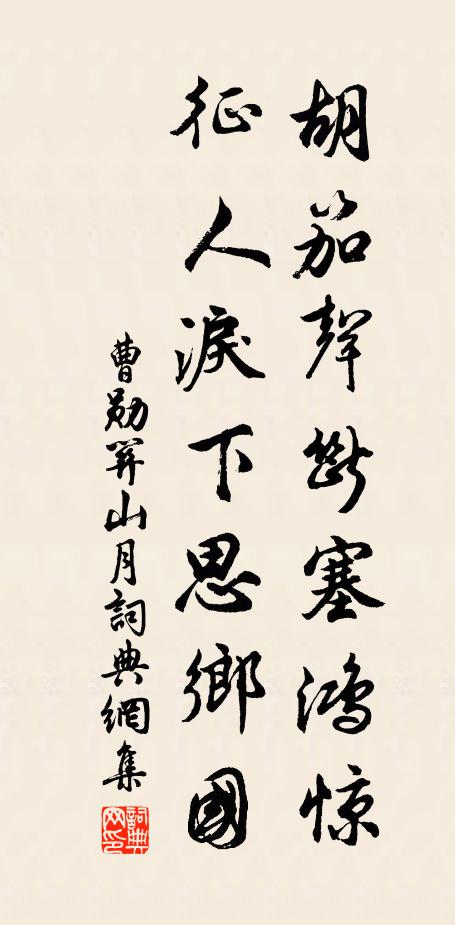 胡笳聲斷塞鴻惊
征人淚下思鄉國
曹勛關山月詞典網集
詞典網印